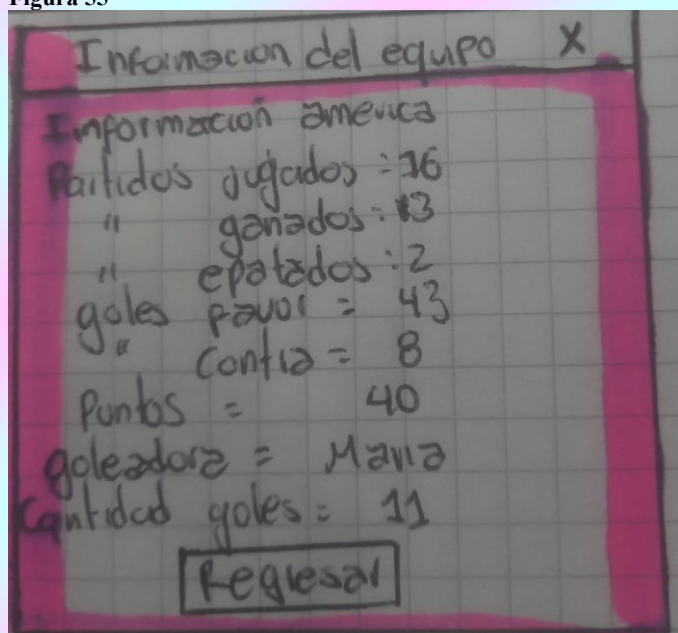 Figura 33
Informacion del equpo X
Informacion america
Partidos jugados : 16
" ganados : 13
" epatados : 2
goles favor = 43
" Contra = 8
Puntos = 40
goleadora = Maria
Cantidad goles = 11
Regresar